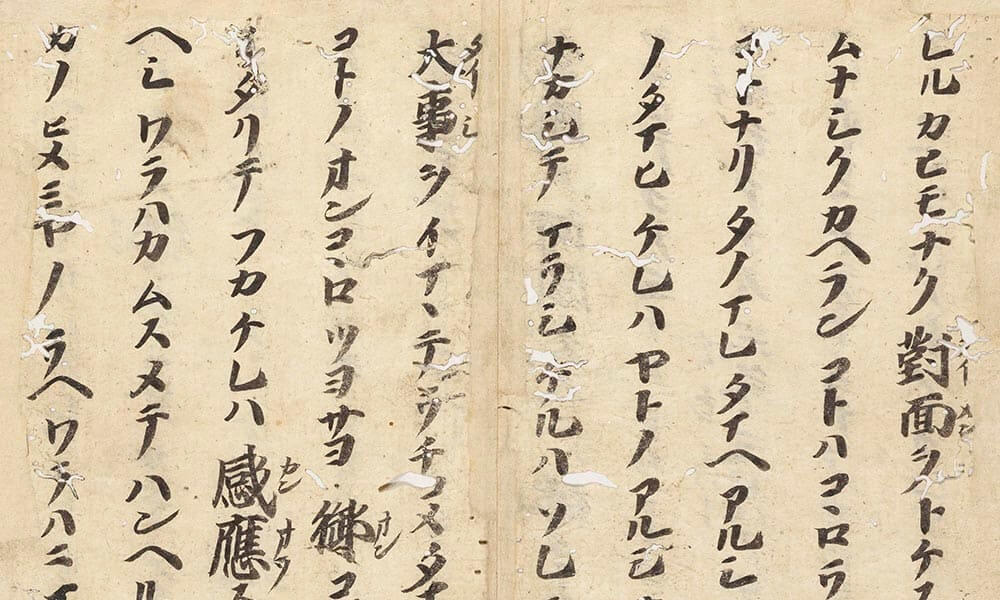 レルカヒモナク對面ヲトケ
ムナシクカヘランコトハコヽロウ
コトナリタヽイレタマヘアルシ
ノタマヒケレハヤトノアルシ
ナカシテマウシケルハソレ
大事ヲイマヽテウチコメタマ
コトノオンコヽロツヨサヨ御コ
タリテフカケレハ感應ス
ヘシワラハカムスメテハンヘル
カノヒメミヤノウヘワラハニマ